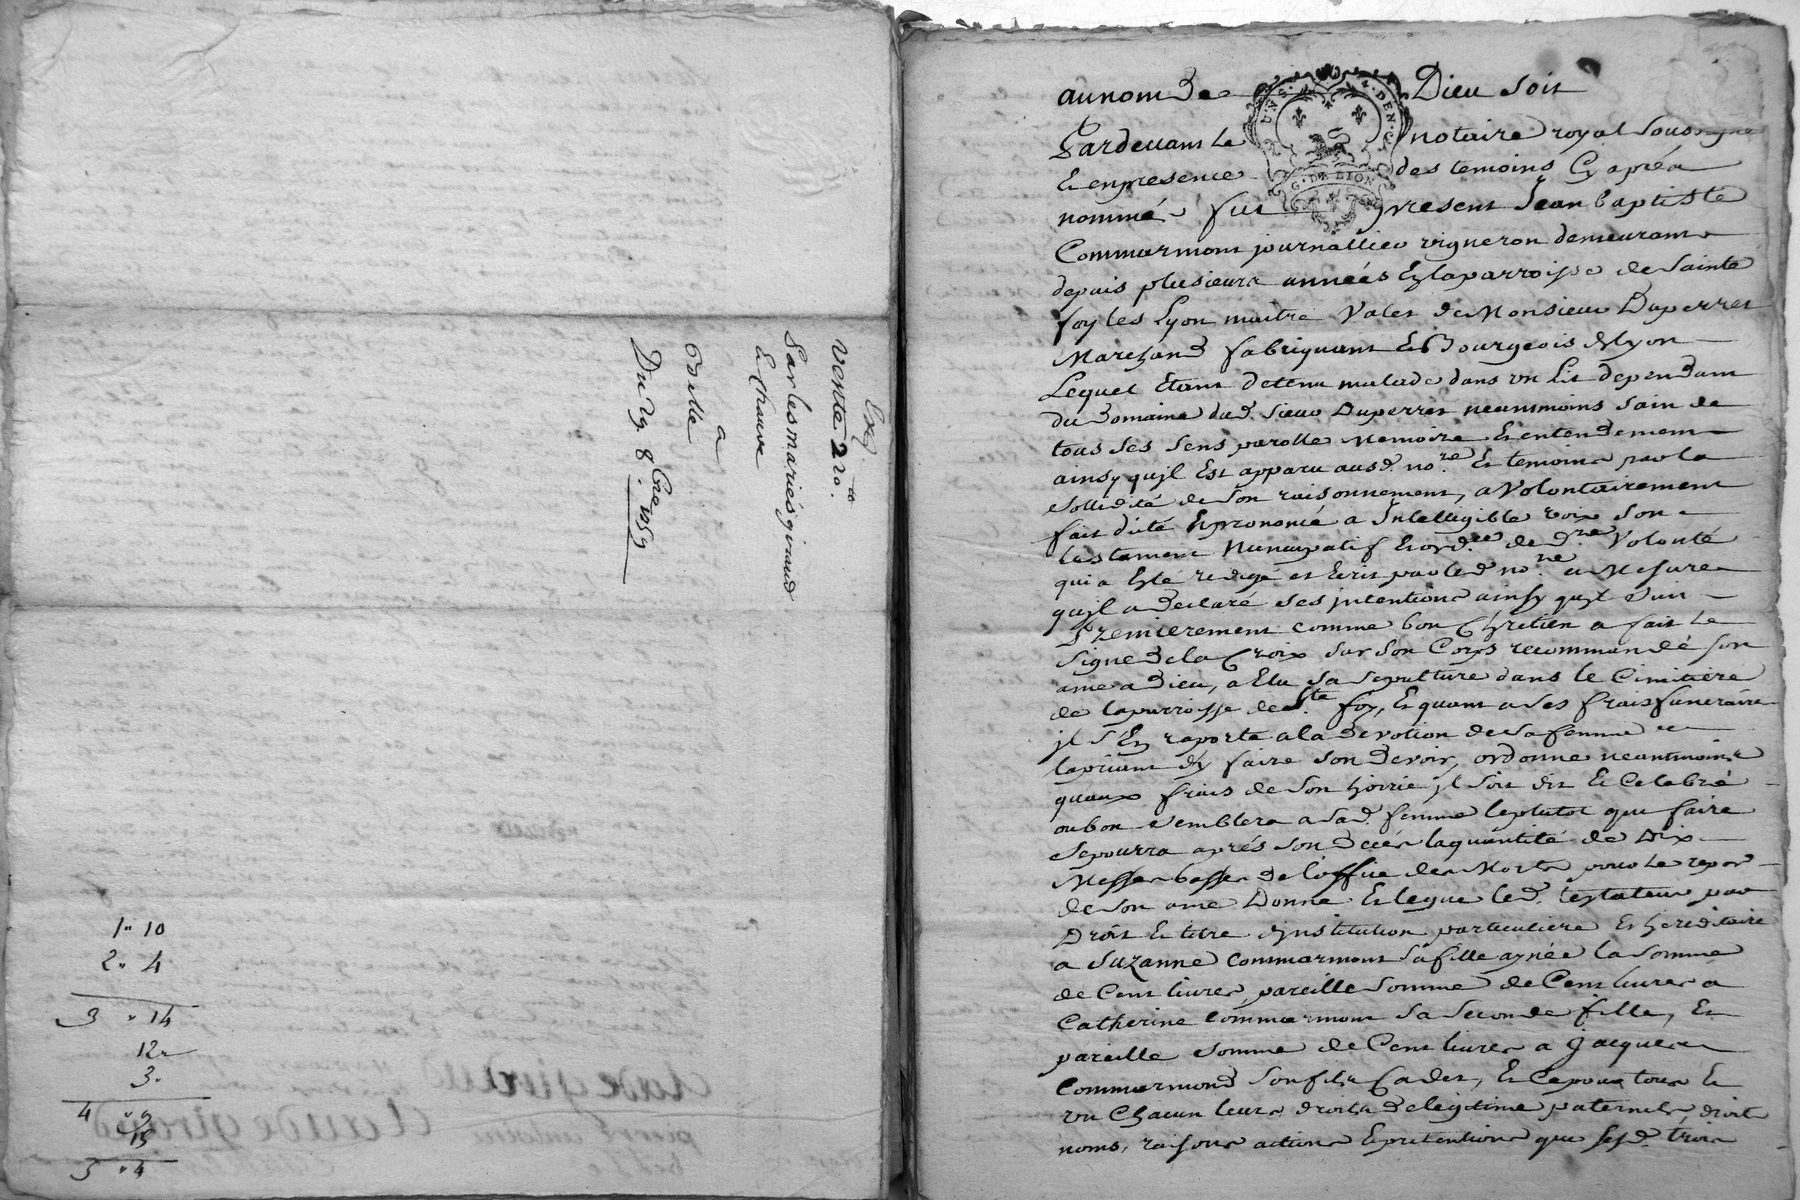 Vente 2 no.re
Par les mariés giraud
Et Chauve
a
Besle
Du 29. 8.bre 1759
1" 10
2" 4
3 " 14
12"
3"
4 " 9
15
5 " 4
au nom de Dieu soit
Pardevant le notaire royal soussigné
Et en presence des temoins Cy aprés
nommés fut present Jean baptiste
Commarmont journallier vigneron demeurant
depuis plusieurs années En la parroisse de Sainte
foy les Lyon maitre Valet de Monsieur Duperret
Marchand fabriquant Et Bourgeois de Lyon
Lequel Etant detenu malade dans un Lit dependant
du Domaine dud. Sieur Duperret neantmoins sain de
tous ses sens parolle memoire Et entendement
ainsy qu'jl Est apparu aud. no.re Et temoins par la
sollidité de son raisonnement, a Volontairement
fait dicté Et prononcé a Intelligible voix son
testament Nuncupatif Et ord.ce de d.re Volonté
qui a Esté redigé et Ecrit par led. no.re a Mesure
qu'jl a declaré ses jntentions ainsy qu'jl suit
Premierement comme bon Chretien a fait le
signe de la Croix sur son Corps recommandé son
ame a Dieu, a Elu sa sepulture dans le Cimitiere
de la parroisse de S.te foy, Et quant a ses frais funeraires
jl s'En raporte a la devotion de sa femme
la priant d'y faire son devoir, ordonne neantmoins
qu'aux frais de son hoirie jl soit dit Et Celebré
ou bon semblera a sad. femme le plutot que faire
se pourra aprés son decés la quantité de Dix
Messes basses de l'office des Morts pour le repos
de son ame Donne Et legue led. testateur par
Droit Et titre d'jnstitution particuliere Et hereditaire
a Suzanne Commarmont sa fille aynée la somme
de Cent livres, pareille somme de Cent livres a
Catherine Commarmont sa seconde fille, Et
pareille somme de Cent livres a Jacques
Commarmond son fils Cadet, Et Ce pour tous Et
un Chacun leurs droits de legitime paternels droits
noms, raisons actions Et pretentions que sesd. trois